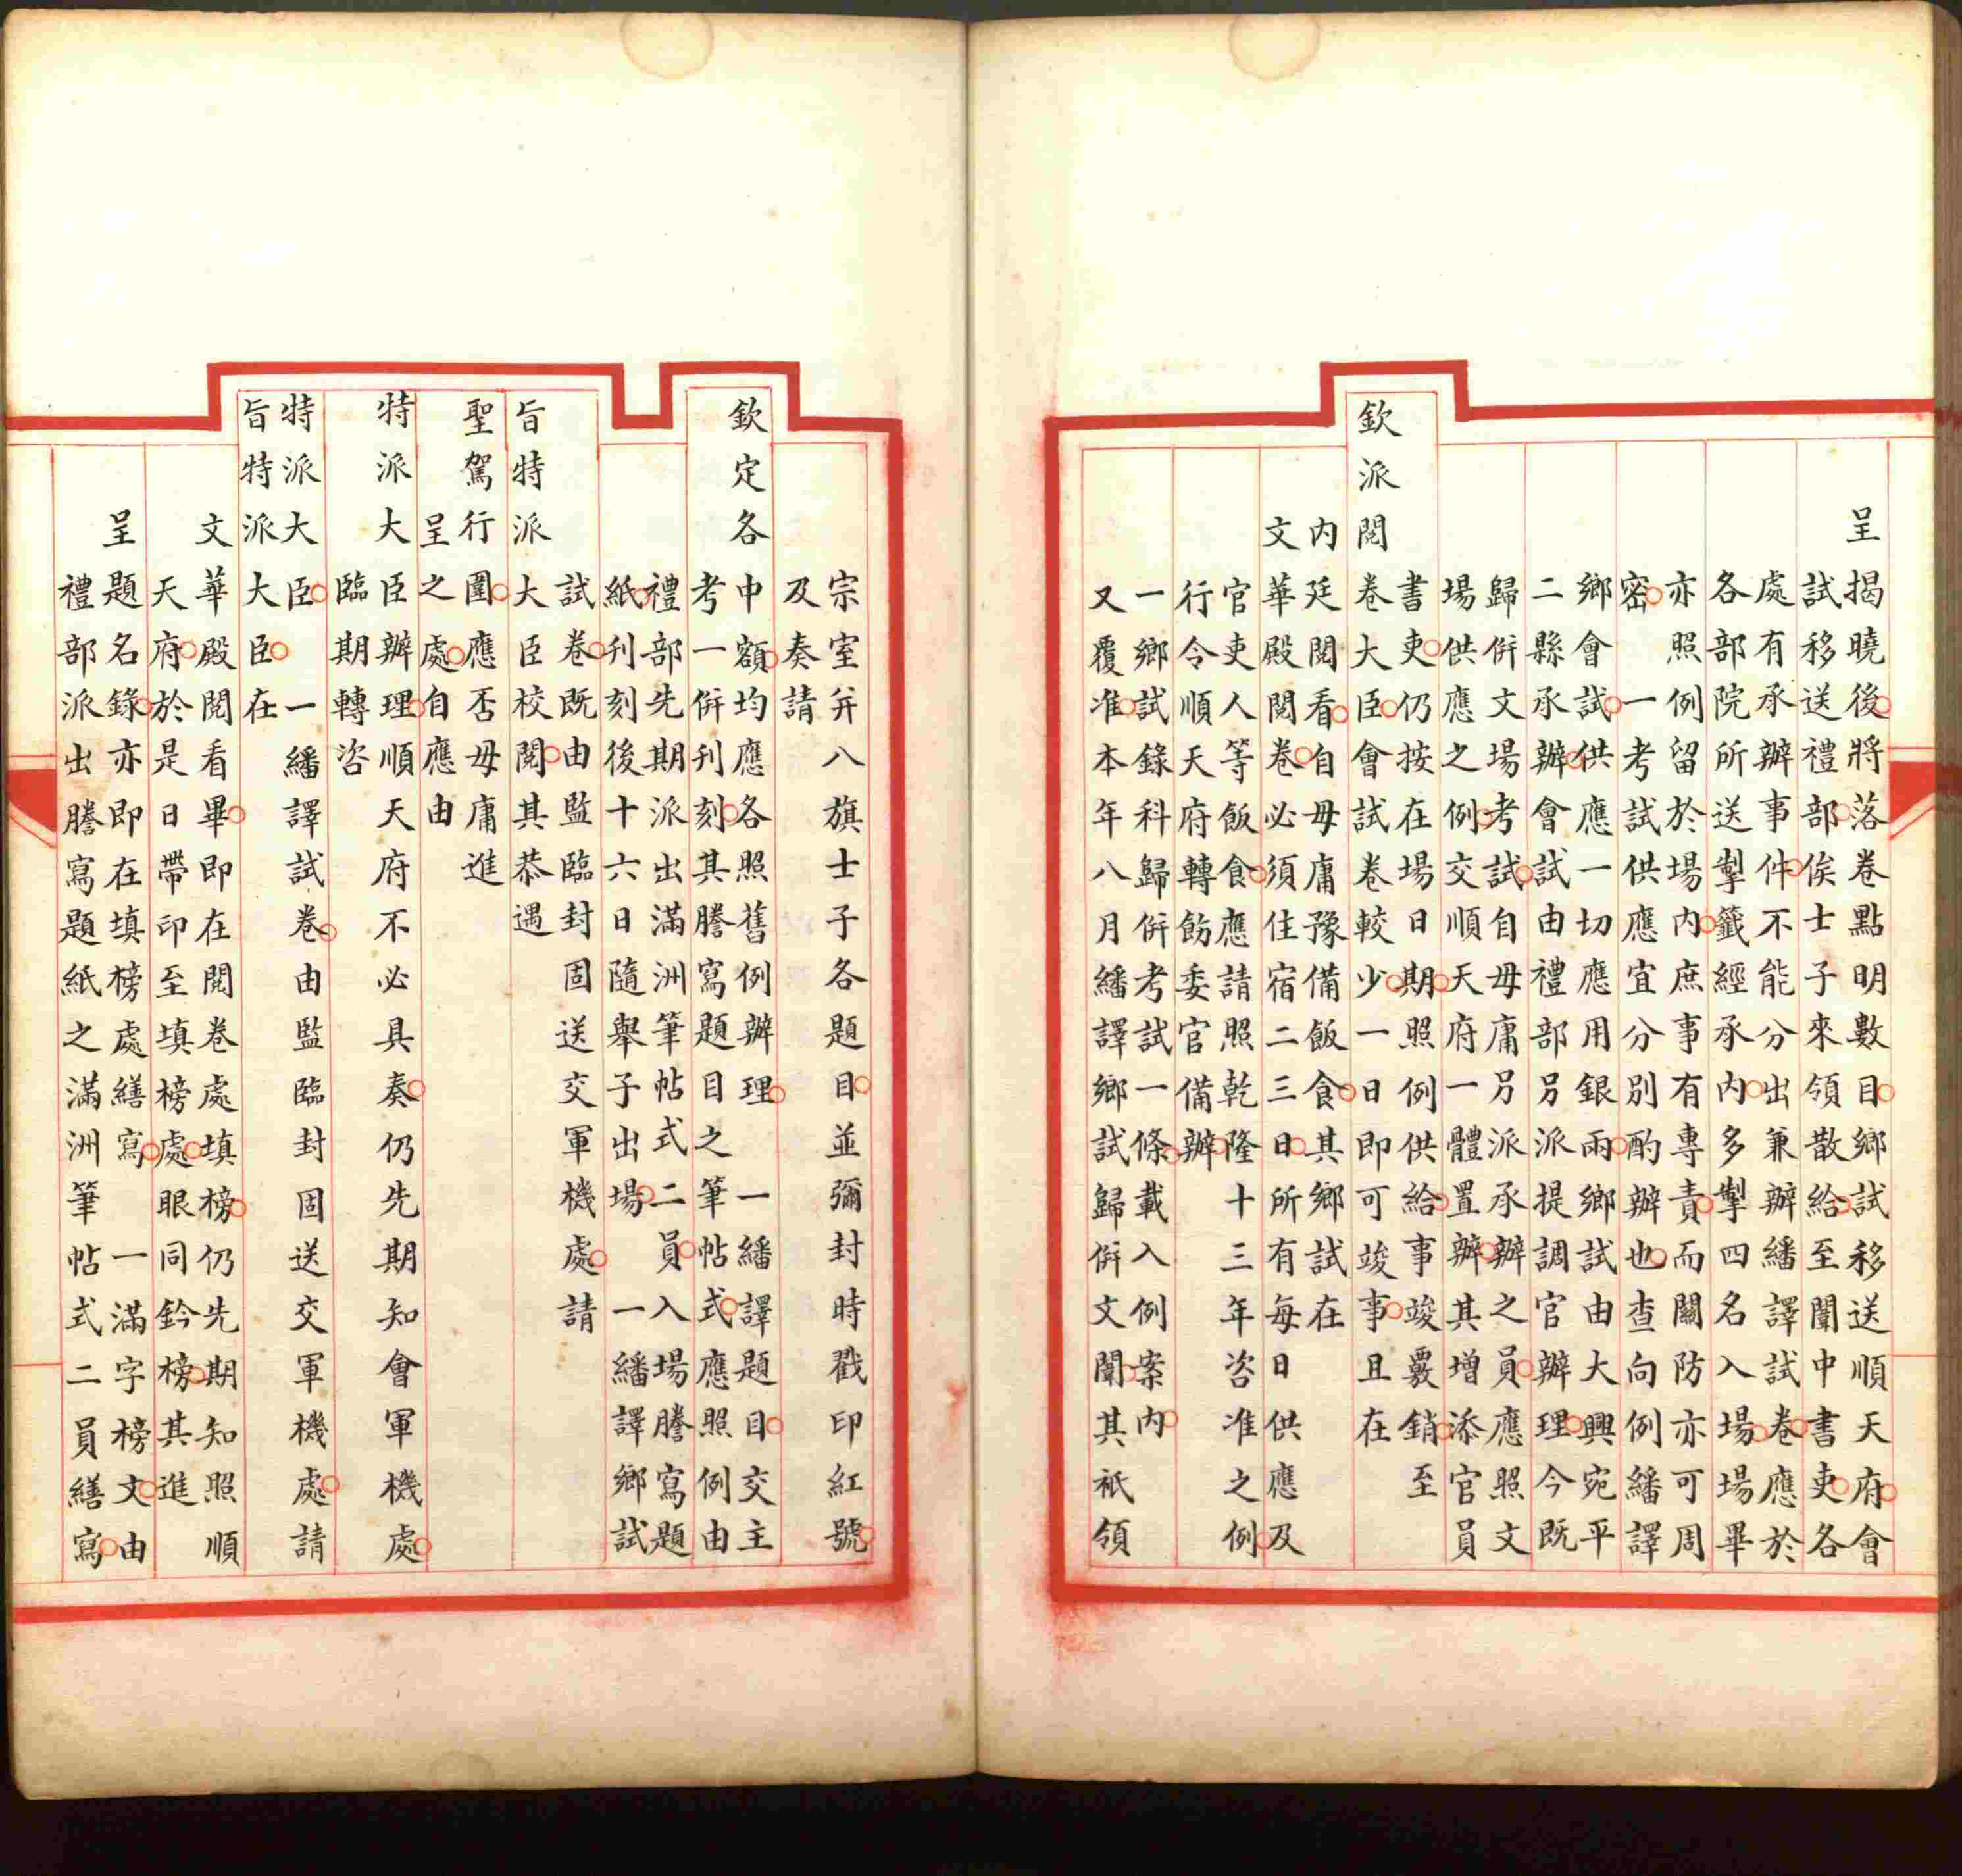 呈揭曉後將落卷點明數目鄉試移送順天府會
試移送禮部俟士子來領散給至闈中書吏各
處有承辦事件不能分出兼辦繙譯試卷應於
各部院所送掣籤經承內多掣四名入場場畢
亦照例留於場內庶事有專責而關防亦可周
密一考試供應宜分別酌辦也查向例繙譯
鄉會試供應一切應用銀兩鄉試由大興宛平
二縣承辦會試由禮部另派提調官辦理今既
歸併文場考試自毋庸另派承辦之員應照文
場供應之例交順天府一體置辦其增添官員
書吏仍按在場日期照例供給事竣覈銷至
欽派閱卷大臣會試卷較少一日即可竣事且在
內廷閱看自毋庸豫備飯食其鄉試在
文華殿閱卷必須住宿二三日所有每日供應及
官吏人等飯食應請照乾隆十三年咨准之例
行令順天府轉飭委官備辦
一鄉試錄科歸併考試一條載入例案內
又覆准本年八月繙譯鄉試歸併文闈其祇領
宗室并八旗士子各題目並彌封時戳印紅號
及奏請
欽定各中額均應各照舊例辦理一繙譯題目交主
考一併刊刻其謄寫題目之筆帖式應照例由
禮部先期派出滿洲筆帖式二員入場謄寫題
紙刊刻後十六日隨舉子出場一繙譯鄉試
試卷既由監臨封固送交軍機處請
旨特派大臣校閱其恭遇
聖駕行圍應否毋庸進
呈之處自應由
特派大臣辦理順天府不必具奏仍先期知會軍機處
臨期轉咨
特派大臣一繙譯試卷由監臨封固送交軍機處請
旨特派大臣在
文華殿閱看畢即在閱卷處填榜仍先期知照順
天府於是日帶印至填榜處眼同鈐榜其進
呈題名錄亦即在填榜處繕寫一滿字榜文由
禮部派出謄寫題紙之滿洲筆帖式二員繕寫